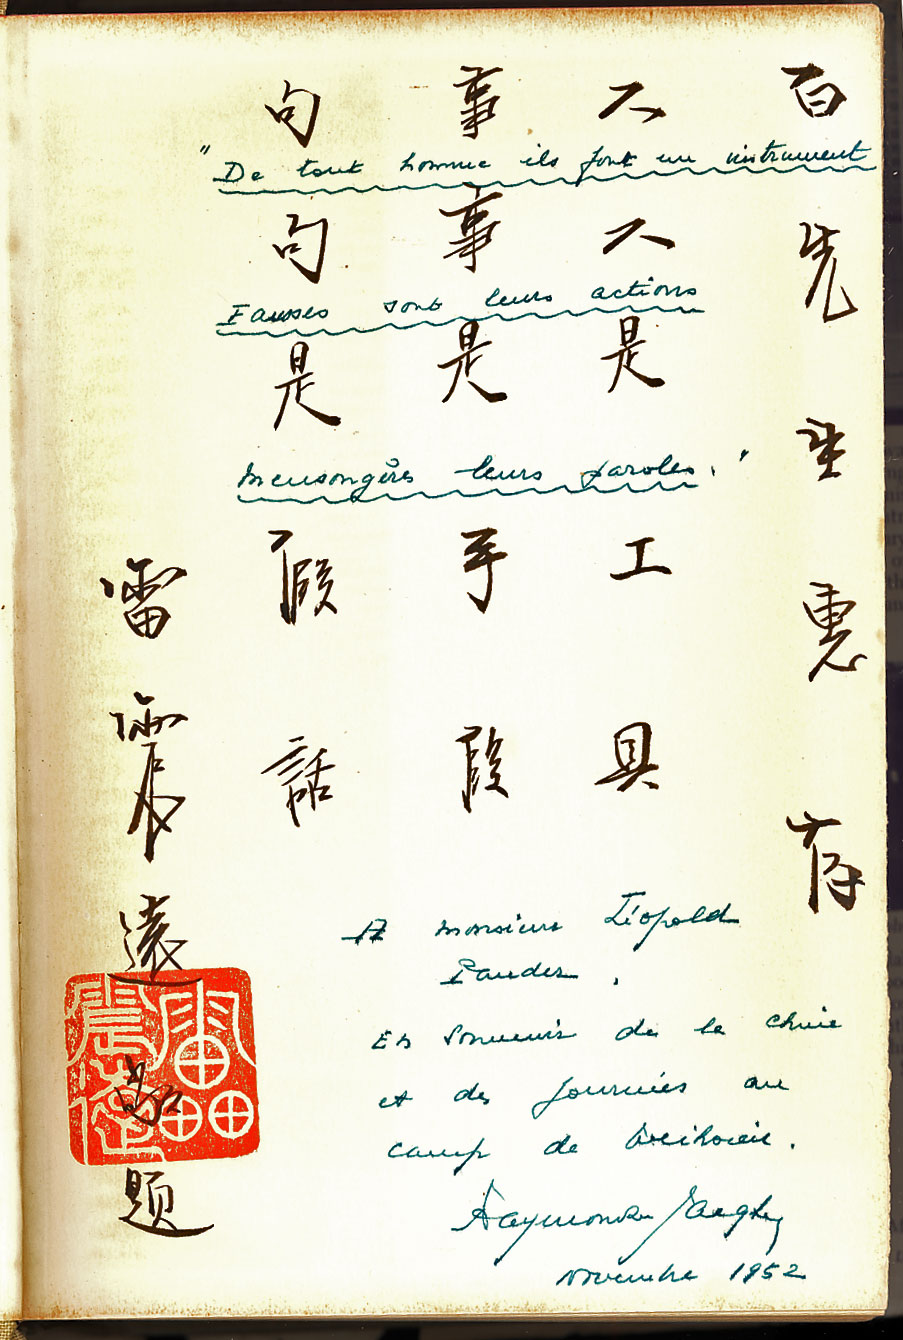 百先生惠存
人人是工具
事事是手段
句句是假話
雷震遠敬題
"De tout homme ils font un instrument
Fausses sont leurs actions
mensongères leurs paroles."
A monsieur Léopold
Pander,
En souvenir de la Chine
et des journées au
camp de Weihsien.
Raymond de Jaegher
Novembre 1952